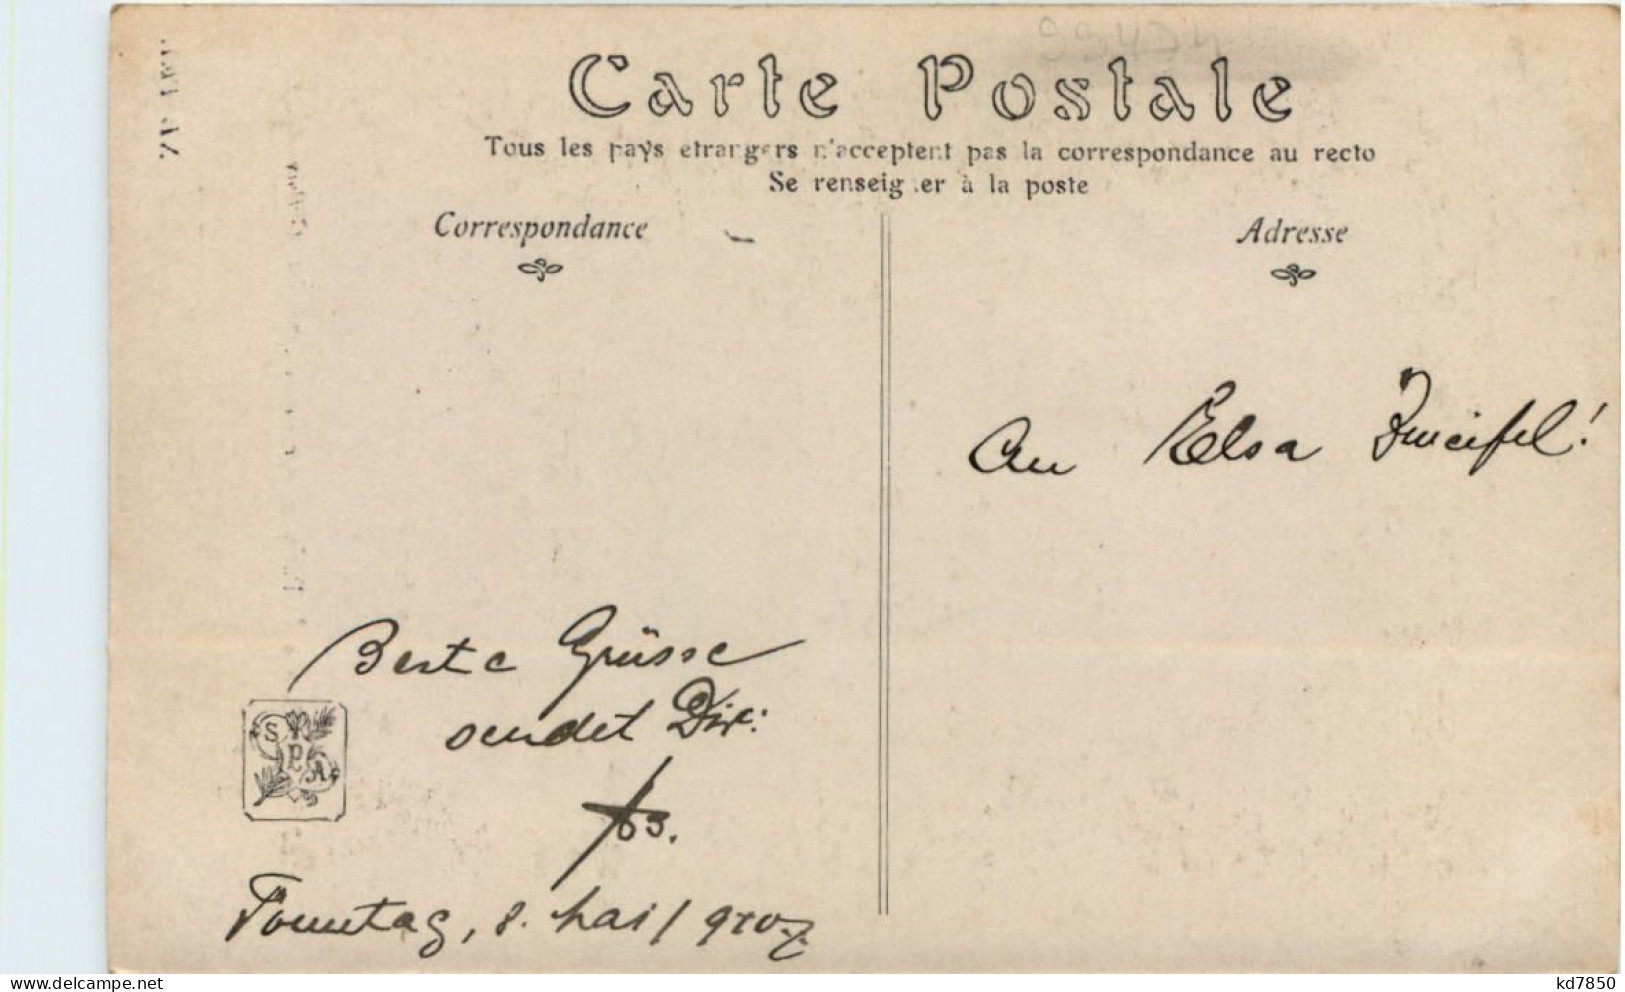 Carte Postale
Tous les pays etrangers n'acceptent pas la correspondance au recto
Se renseigner à la poste
Correspondance
Adresse
An Elsa Zweifel!
Beste Grüsse
sendet Dir:
S P A
Sonntag, 8. Mai /
kd7850